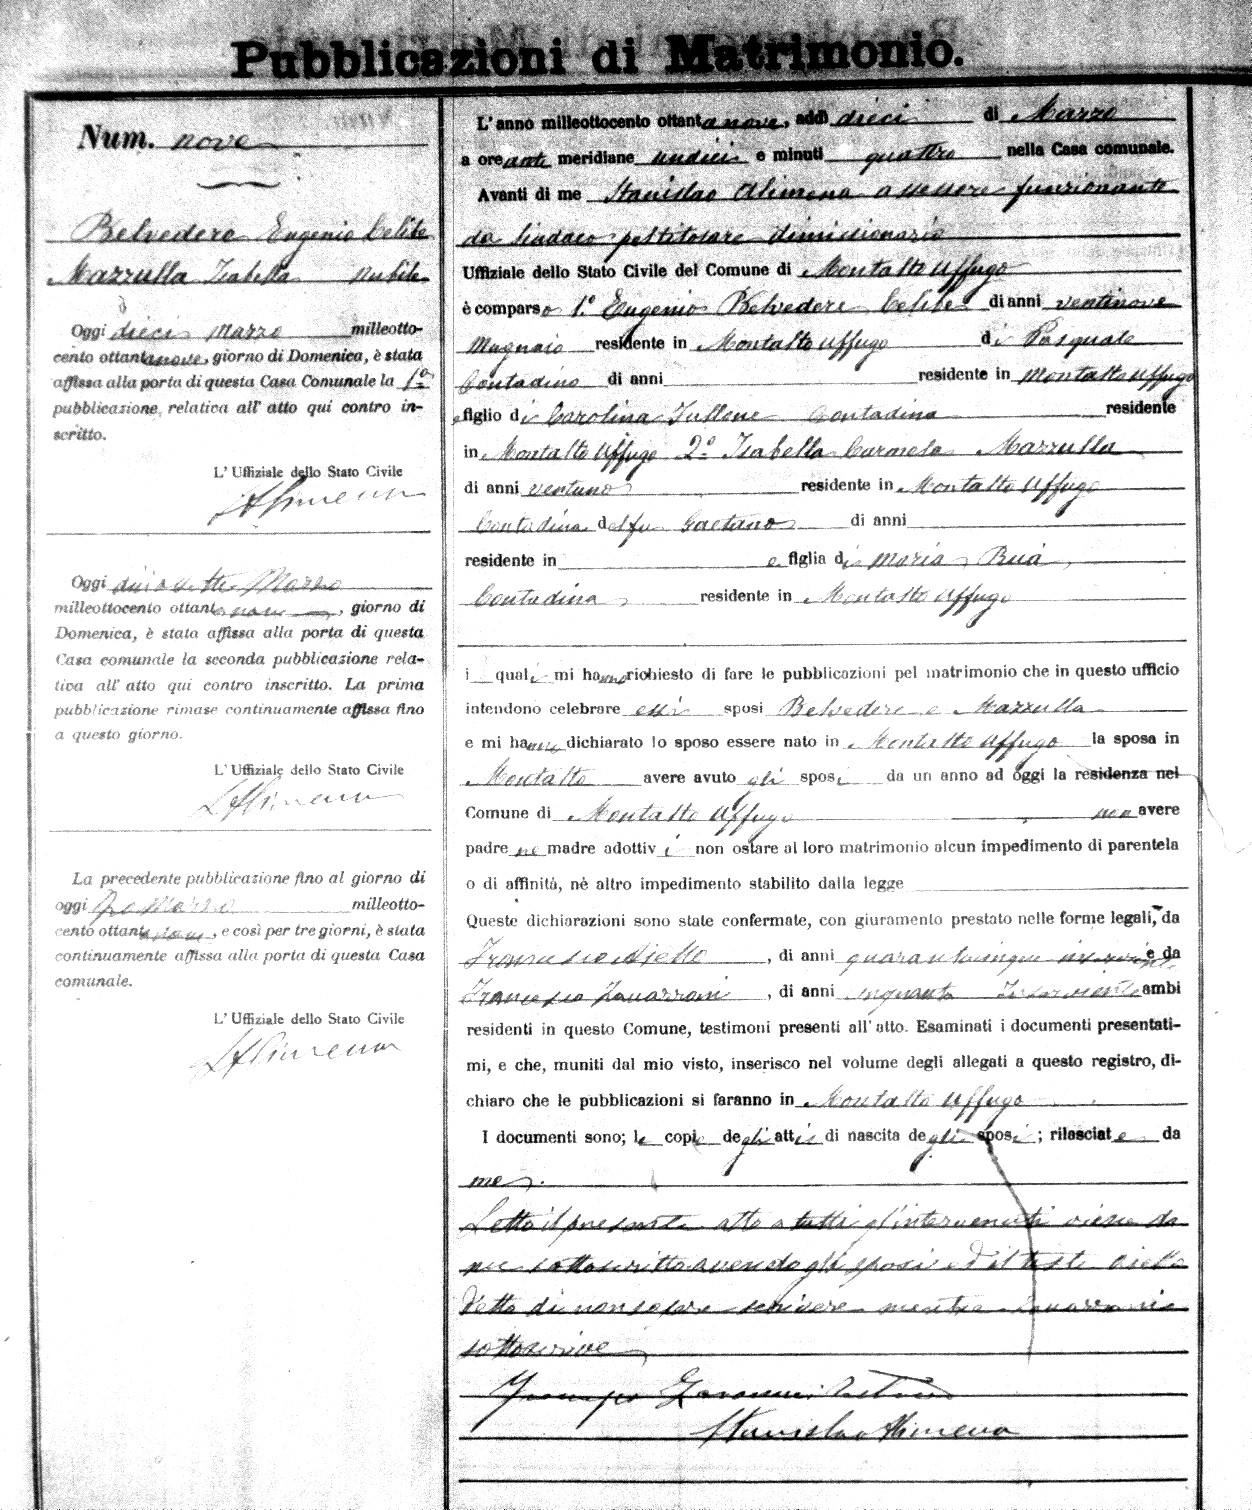 Pubblicazioni di Matrimonio.
Num. nove
Belvedere Eugenio Celibe
Mazzulla Isabella nubile
Oggi dieci Marzo milleotto-
cento ottantanove, giorno di Domenica, è stata
affissa alla porta di questa Casa Comunale la 1a
pubblicazione relativa all' atto qui contro in-
scritto.
L' Uffiziale dello Stato Civile
Alimena
Oggi diciasette Marzo
milleottocento ottantanove, giorno di
Domenica, è stata affissa alla porta di questa
Casa comunale la seconda pubblicazione rela-
tiva all' atto qui contro inscritto. La prima
pubblicazione rimase continuamente affissa fino
a questo giorno.
L' Uffiziale dello Stato Civile
Alimena
La precedente pubblicazione fino al giorno di
oggi Marzo milleotto-
cento ottantanove, e così per tre giorni, è stata
continuamente affissa alla porta di questa Casa
comunale.
L' Uffiziale dello Stato Civile
Alimena
L' anno milleottocento ottantanove, addì dieci di Marzo
a ore anti meridiane undici e minuti quattro nella Casa comunale.
Avanti di me Stanislao Alimena assessore funzionante
da Sindaco pel titolare dimissionario
Uffiziale dello Stato Civile del Comune di Montalto Uffugo
è comparso 1.° Eugenio Belvedere Celibe di anni ventinove
Mugnaio residente in Montalto Uffugo di Pasquale
Contadino di anni residente in Montalto Uffugo
e figlio di Carolina Tullone Contadina residente
in Montalto Uffugo 2.° Isabella Carmela Mazzulla
di anni ventuno residente in Montalto Uffugo
Contadina del fu Gaetano di anni
residente in e figlia di Maria Buà
Contadina residente in Montalto Uffugo
i quali mi hanno richiesto di fare le pubblicazioni pel matrimonio che in questo ufficio
intendono celebrare essi sposi Belvedere e Mazzulla
e mi hanno dichiarato lo sposo essere nato in Montalto Uffugo la sposa in
Montalto avere avuto gli sposi da un anno ad oggi la residenza nel
Comune di Montalto Uffugo non avere
padre ne madre adottivi non ostare al loro matrimonio alcun impedimento di parentela
o di affinità, nè altro impedimento stabilito dalla legge
Queste dichiarazioni sono state confermate, con giuramento prestato nelle forme legali, da
Francesco Aiello, di anni quarantacinque inserviente e da
Francesco Zavarroni, di anni cinquanta Inserviente ambi
residenti in questo Comune, testimoni presenti all' atto. Esaminati i documenti presentati-
mi, e che, muniti dal mio visto, inserisco nel volume degli allegati a questo registro, di-
chiaro che le pubblicazioni si faranno in Montalto Uffugo
I documenti sono; le copie degli atti di nascita degli sposi; rilasciate da
me.
Letto il presente atto a tutti gl'intervenuti viene da
me sottoscritto avendo gli sposi ed il teste Aiello
detto di non sapere scrivere mentre Zavarroni
sottoscrive
Francesco Zavarroni
Stanislao Alimena